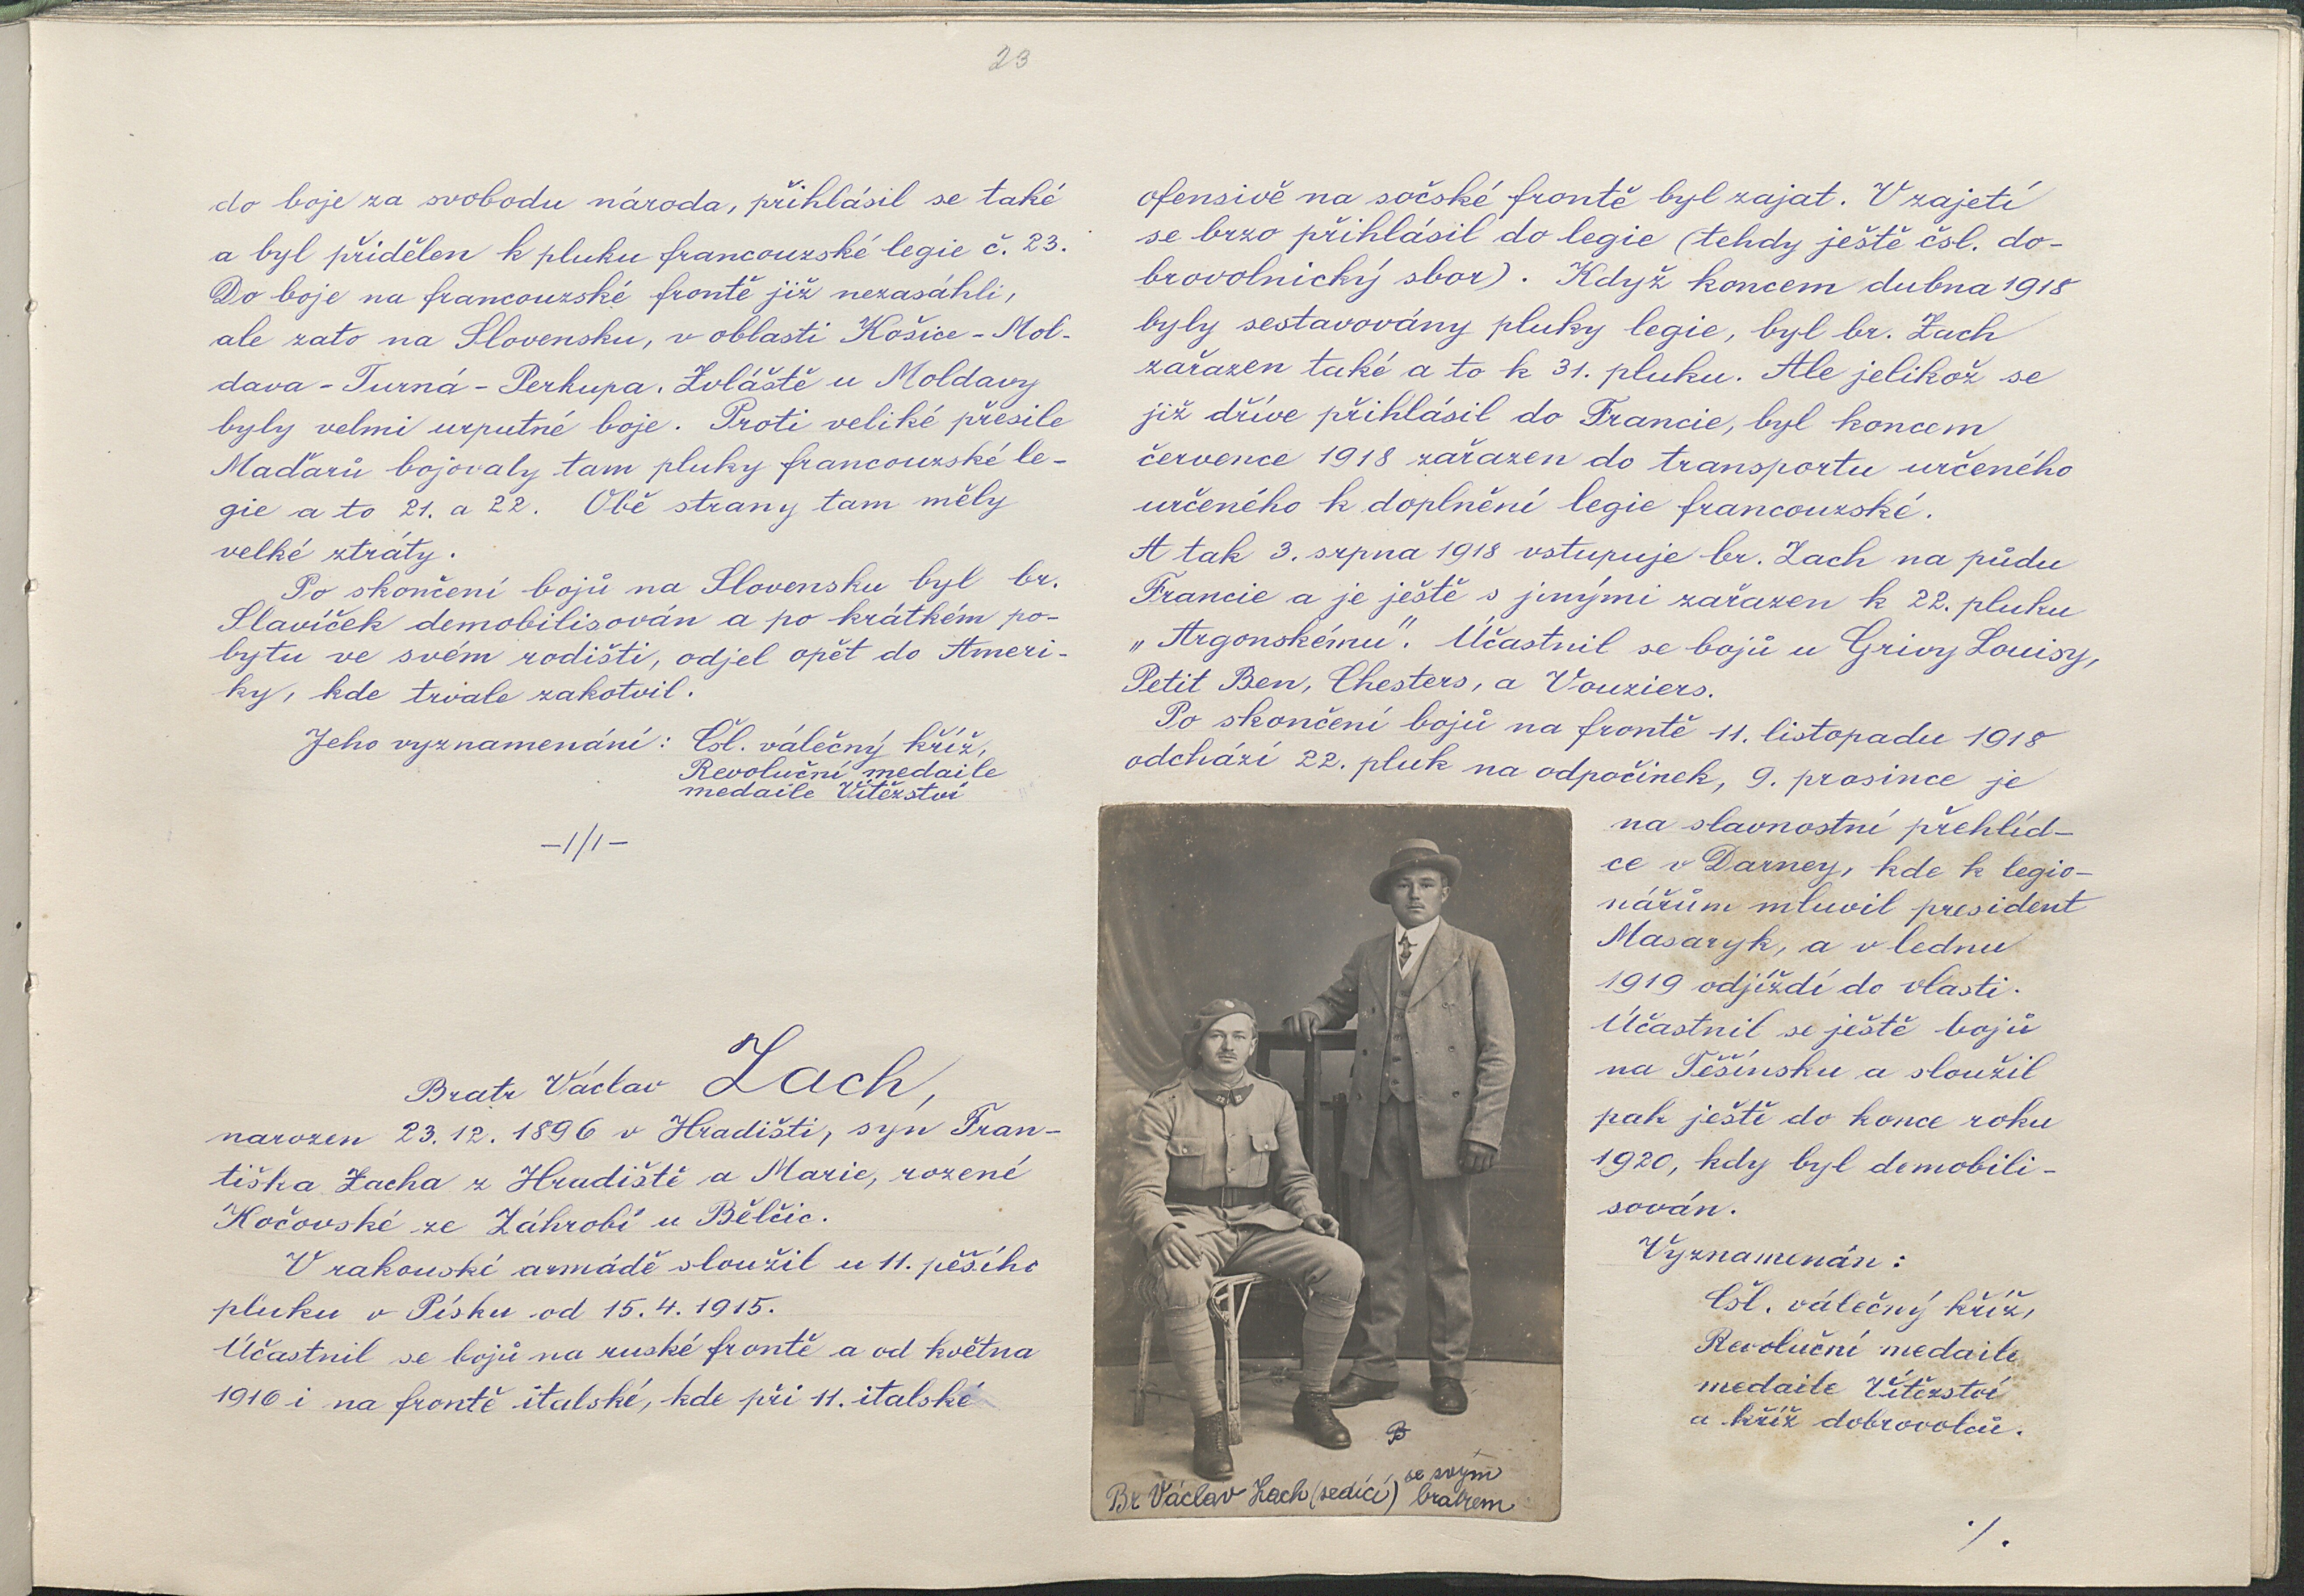 23
do boje za svobodu národa, přihlásil se také
a byl přidělen k pluku francouzské legie č. 23.
Do boje na francouzské frontě již nezasáhli,
ale zato na Slovensku, v oblasti Košice - Mol-
dava - Turná - Perkupa. Zvláště u Moldavy
byly velmi urputné boje. Proti veliké přesile
Maďarů bojovaly tam pluky francouzské le-
gie a to 21. a 22. Obě strany tam měly
velké ztráty.
Po skončení bojů na Slovensku byl br.
Slavíček demobilisován a po krátkém po-
bytu ve svém rodišti, odjel opět do Ameri-
ky, kde trvale zakotvil.
Jeho vyznamenání: Čsl. válečný kříž,
Revoluční medaile
medaile Vítězství
-//-
Bratr Václav Zach,
narozen 23. 12. 1896 v Hradišti, syn Fran-
tiška Zacha z Hradiště a Marie, rozené
Kočovské ze Záhrobí u Bělčic.
V rakouské armádě sloužil u 11. pěšího
pluku v Písku od 15. 4. 1915.
Účastnil se bojů na ruské frontě a od května
1916 i na frontě italské, kde při 11. italské
ofensivě na sočské frontě byl zajat. V zajetí
se brzo přihlásil do legie (tehdy ještě čsl. do-
brovolnický sbor). Když koncem dubna 1918
byly sestavovány pluky legie, byl br. Zach
zařazen také a to k 31. pluku. Ale jelikož se
již dříve přihlásil do Francie, byl koncem
července 1918 zařazen do transportu určeného
určeného k doplnění legie francouzské.
A tak 3. srpna 1918 vstupuje br. Zach na půdu
Francie a je ještě s jinými zařazen k 22. pluku
„Argonskému". Účastnil se bojů u Grivy Louisy,
Petit Ben, Chesters, a Vouziers.
Po skončení bojů na frontě 11. listopadu 1918
odchází 22. pluk na odpočinek, 9. prosince je
na slavnostní přehlíd-
ce v Darney, kde k legio-
nářům mluvil president
Masaryk, a v lednu
1919 odjíždí do vlasti.
Účastnil se ještě bojů
na Těšínsku a sloužil
pak ještě do konce roku
1920, kdy byl demobili-
sován.
Vyznamenán:
Čsl. válečný kříž,
Revoluční medaile
medaile Vítězství
a kříž dobrovolců.
B
Br Václav Zach (sedící) se svým
bratrem
./.